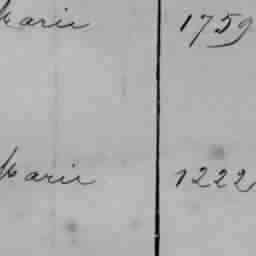 Marie 1759
Marie 1222